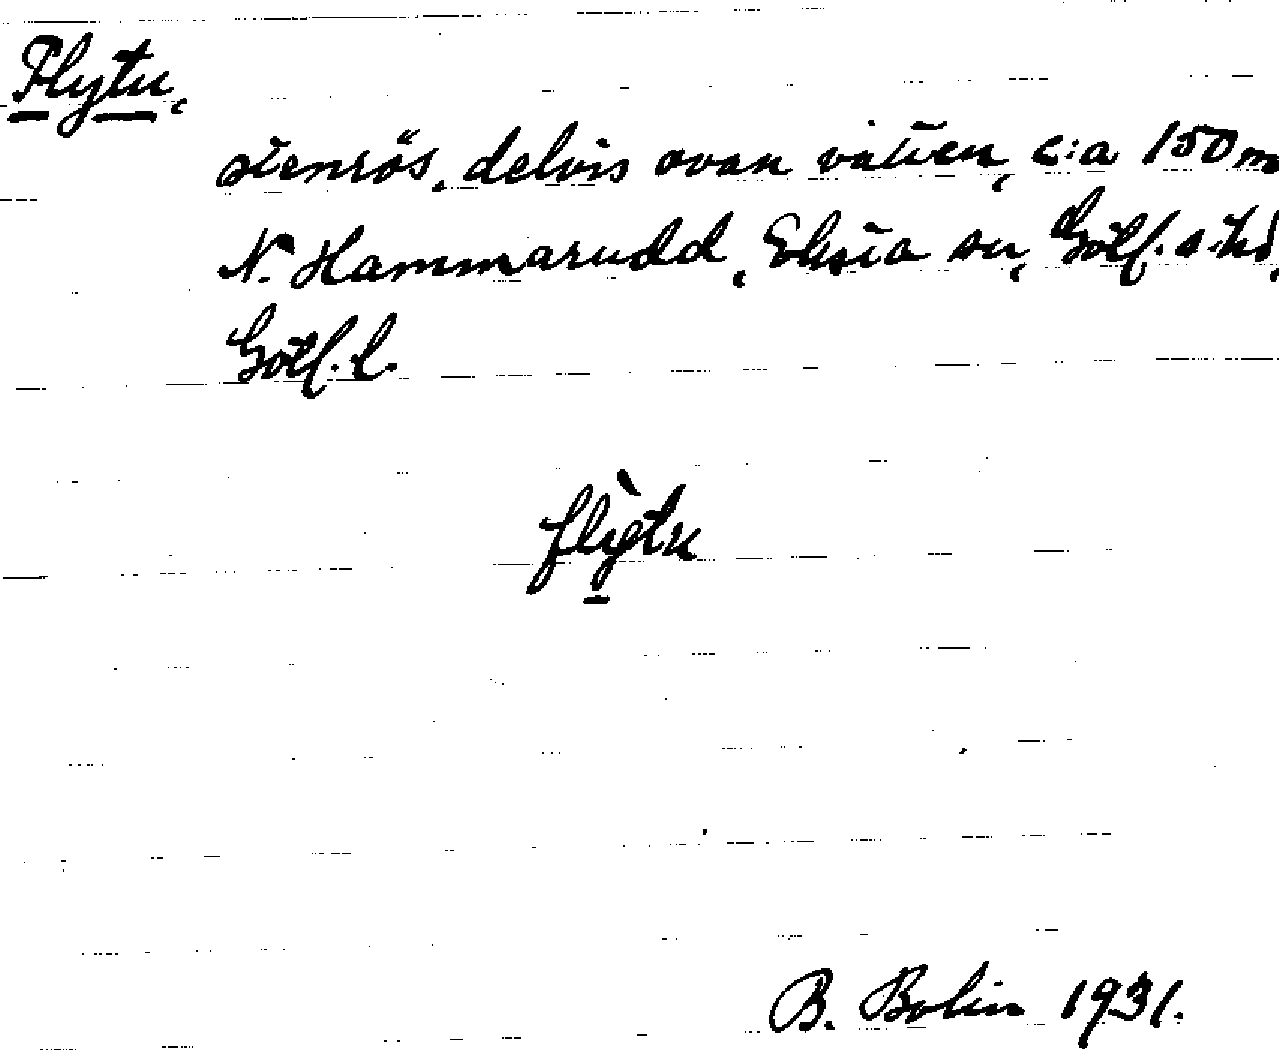 Flytu,
stenrös, delvis ovan vatten, c:a 150 m
N. Hammarudd, Eksta sn, Gotl. s. hd,
Gotl. l.
flỳtu
B. Bolin 1931.